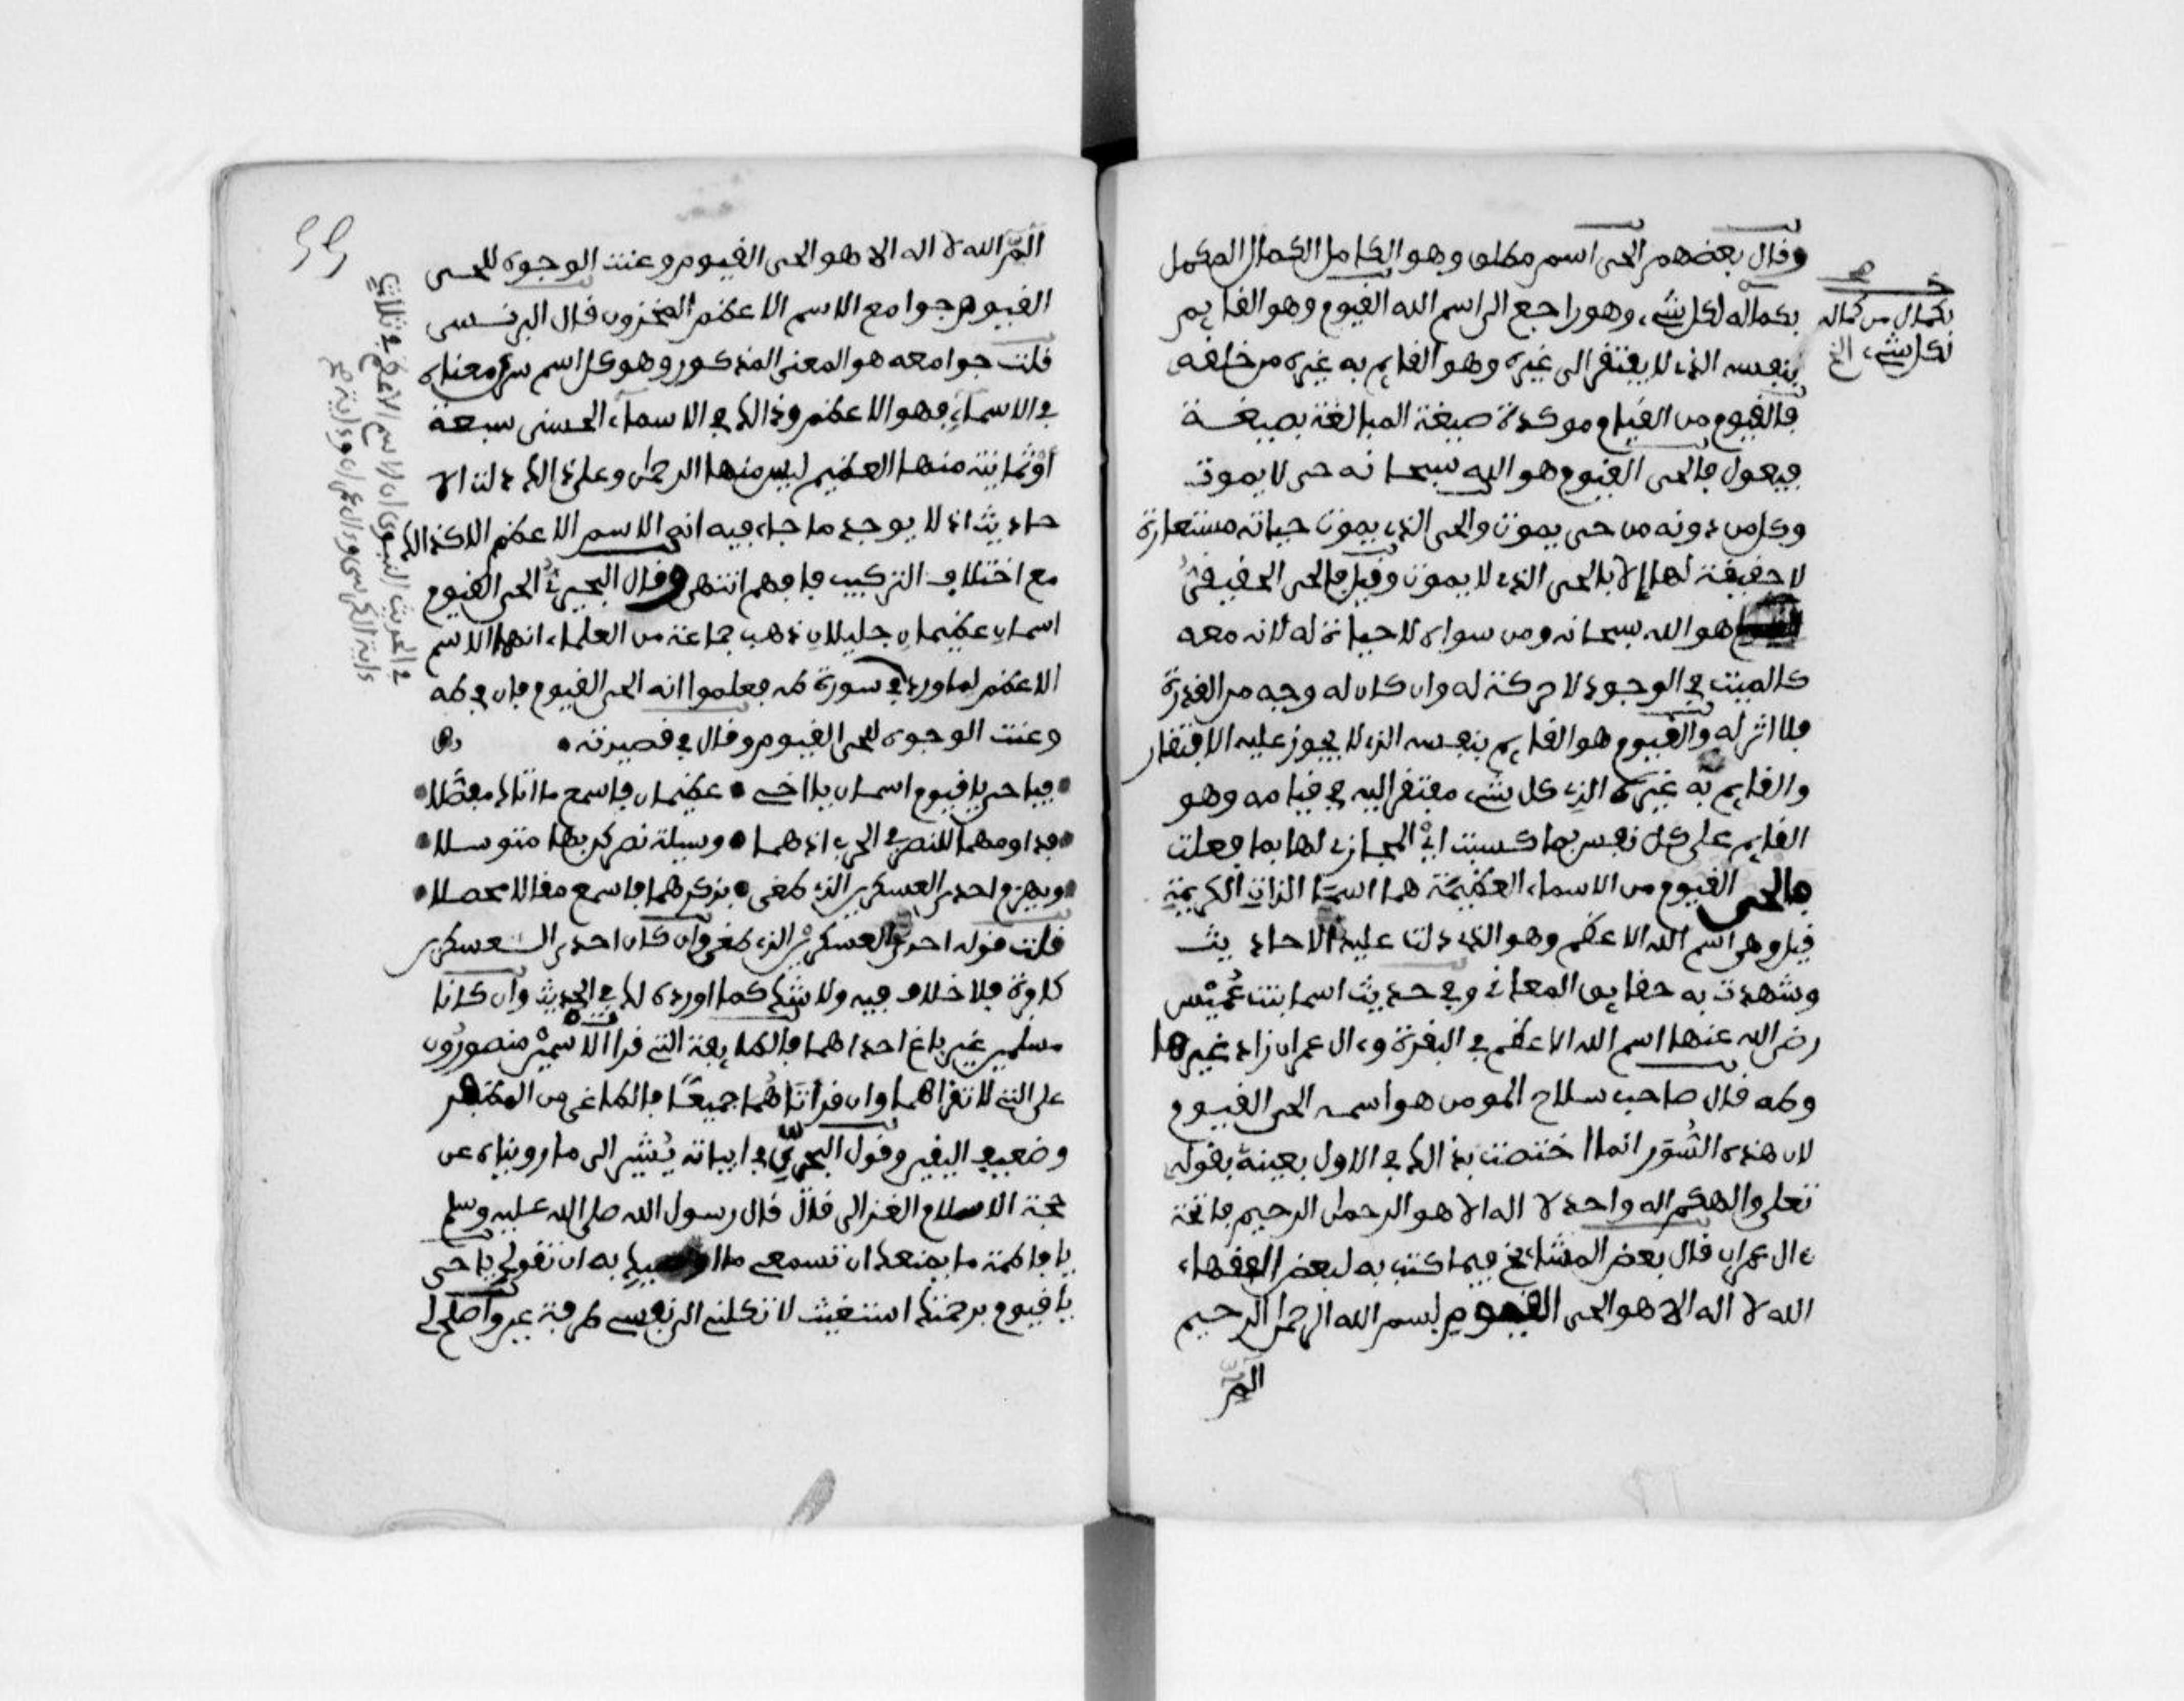 وقال بعضهم الحي اسم مطلق وهو الكامل الكمال المكمل
بكماله لكل شيء وهو راجع الى اسم الله القيوم وهو القايم
بنفسه الذي لا يفتقر الى غيره وهو القايم به غيره من خلقه
فالقيوم من القيام موكدة صيغة المبالغة بصيغة
فيعول فالحي القيوم هو الله سبحانه حي لا يموت
وكل من دونه من حي يموت والحي الذي يموت حياته مستعارة
لا حقيقة لها الا بالحي الذي لا يموت وقيل فالحي الحقيقي
هو الله سبحانه ومن سواه لا حياة له لانه معه
كالميت في الوجود لا حركة له وان كان له وجه من القدرة
فلا اثر له والقيوم هو القايم بنفسه الذي لا يجوز عليه الافتقار
والقايم به غيره الذي كل شيء مفتقر اليه في قيامه وهو
القايم على كل نفس بما كسبت اي المجازي لها بما فعلت
فالحي القيوم من الاسماء العظيمة هما اسما الذات الكريمة
قيل وهو اسم الله الاعظم وهو الذي دلت عليه الاحاديث
وشهدت به حقايق المعاني وفي حديث اسما بنت عميس
رضي الله عنها اسم الله الاعظم في البقرة وءال عمران زاد غيرها
وطه قال صاحب سلاح المومن هو اسمه الحي القيوم
لان هذه السور انما اختصت بذالك في الاول بعينة بقوله
تعلى والهكم اله واحد لا اله الا هو الرحمان الرحيم فاتحة
ءال عمران قال بعض المشايخ فيما كتب به لبعض الفقهاء
الله لا اله الا هو الحي القيوم بسم الله الرحمن الرحيم
الم
بكمال من كماله
لكل شيء الخ
الم الله لا اله الا هو الحي القيوم وعنت الوجوه للحي
القيوم جوامع الاسم الاعظم المخزون قال البرنسي
قلت جوامعه هو المعنى المذكور وهو كل اسم سرى معناه
في الاسماء فهو الاعظم وذالك في الاسماء الحسنى سبعة
او ثمانية منها العظيم ليس منها الرحمان وعلى ذالك دلت الا
حاديث اذ لا يوجد ما جاء فيه انه الاسم الاعظم الا كذالك
مع اختلاف التركيب فافهم انتهى وقال البحيري الحي القيوم
اسمان عظيمان جليلان ذهب جماعة من العلماء انهما الاسم
الاعظم لما ورد في سورة طه فعلموا انه الحي القيوم فان في طه
وعنت الوجوه للحي القيوم وقال في قصيدته
فيا حي يا قيوم اسمان يا اخي عظيمان فاسمع ما اتاك مفصلا
فداومهما للنصر في الحرب انهما وسيلة نصر كن بها متوسلا
ويهزم احدى العسكرين الذي طغى بذكرهما فاسمع مقالا محصلا
قلت قوله احدى العسكرين الذي طغى وان كان احدى العسكرين
كافرة فلا خلاف فيه ولا شك كما اورده لك في الحديث وان كانا
مسلمين غير باغ احداهما فالطايفة التي قرا الاسمين منصورون
على التي لا تقراهما وان قراتاهما جميعا فالطاغي من
وضعيف اليقين وقول البحيري في ابياته يشير الى ما رويناه عن
حجة الاسلام الغزالي قال قال رسول الله صلى الله عليه وسلم
يا فاطمة ما يمنعك ان تسمعي ما اوصيك به ان تقولي يا حي
يا قيوم برحمتك استغيث لا تكلني الى نفسي طرفة عين واصلح لي
في الحديث النبوي ان الاسم الاعظم في ثلاث
داية الكرسي وءال عمران